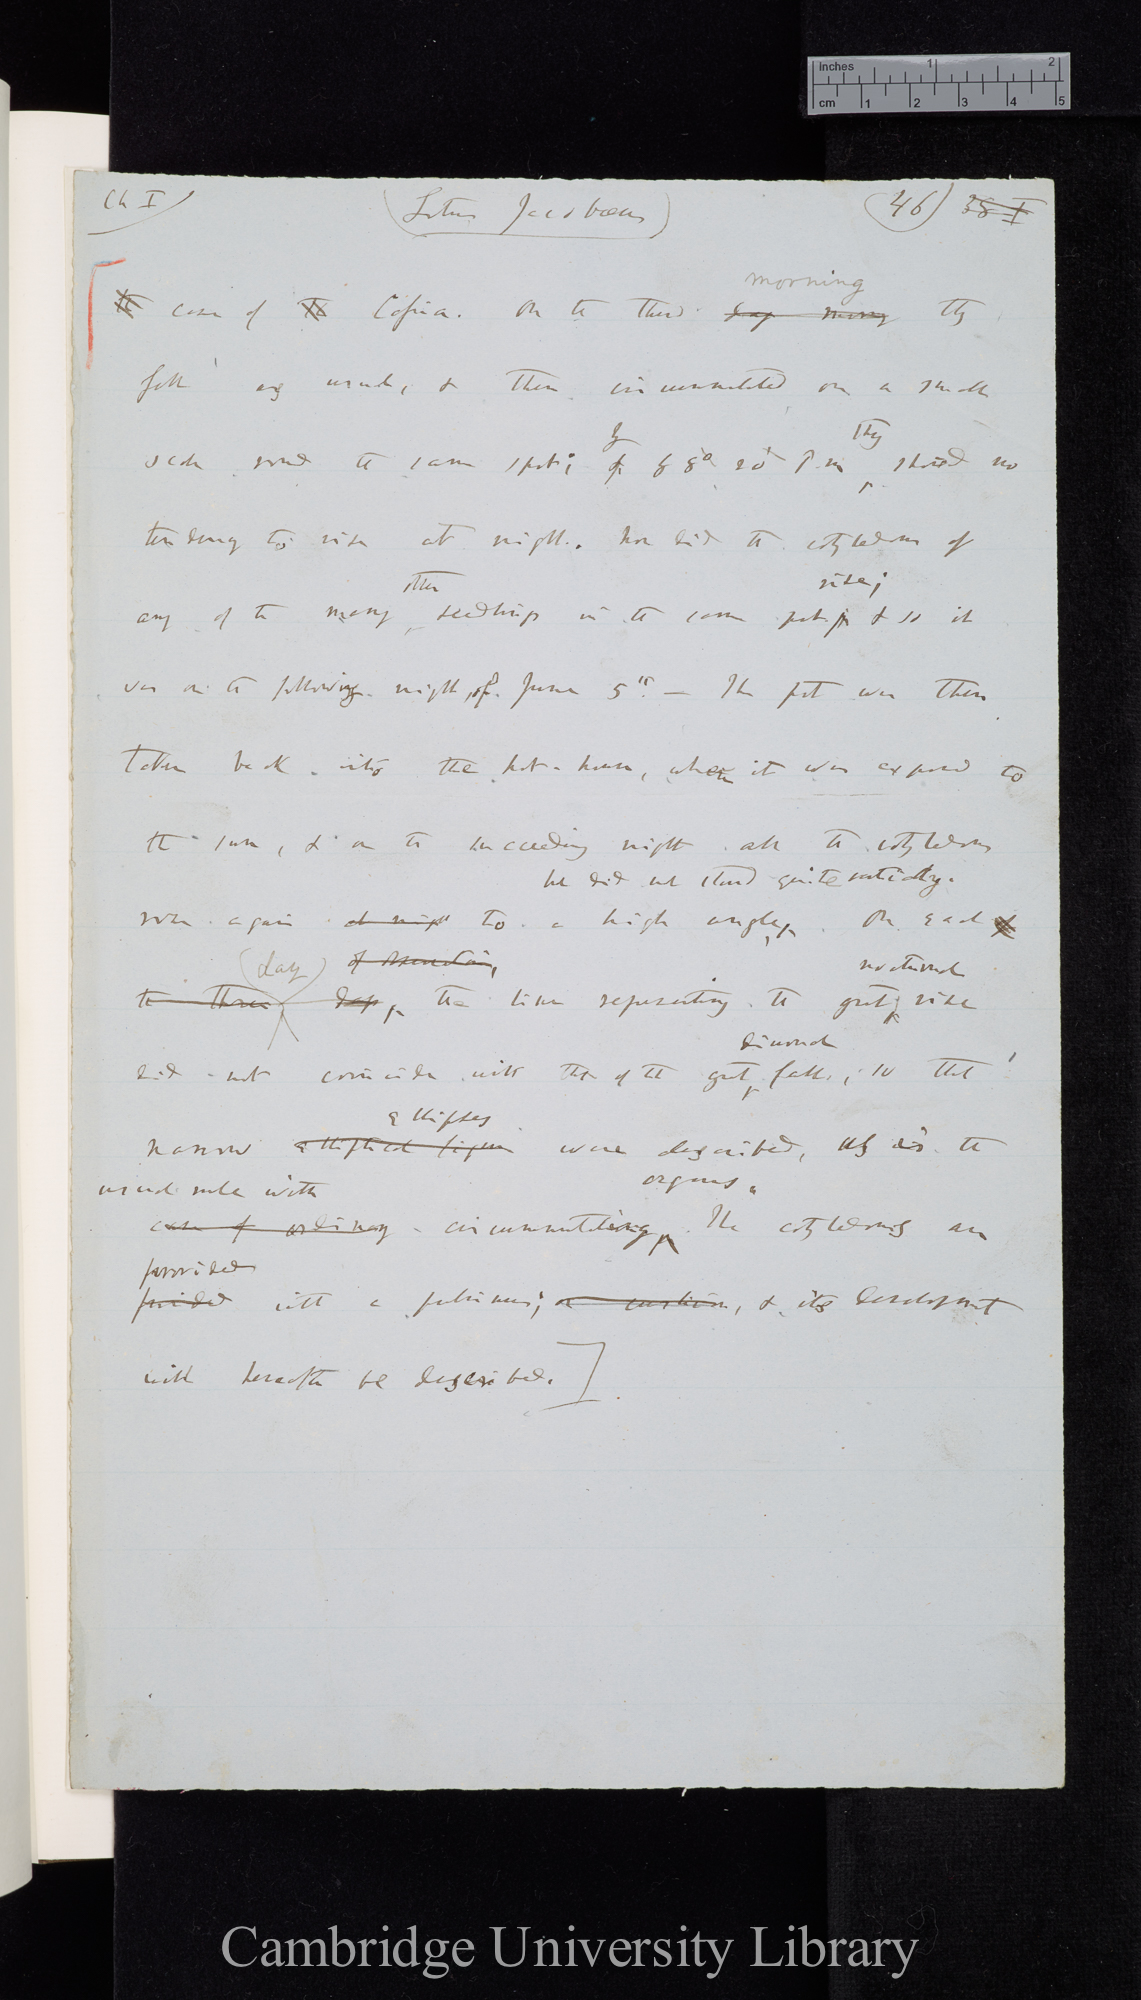 Inches 1 2
cm 1 2 3 4 5
Ch I
(Lotus Jacobæus)
(46) 38 I
morning
case of Cassia. On the third day they
fell as usual, & then circumnutated on a small
by They
scale round the same spot; 8° 20' P.m showed no
tendency to rise at night. Nor did the cotyledons of
other rise;
any of the many seedlings in the same pot & so it
was on the following night, of June 5th. — The pot was then
taken back into the hot-house, where it was exposed to
the sun, & on the succeeding night all the cotyledons
but did not stand quite vertically.
rose again at night to a high angle, On each of
(day) of
the three days, the line representing the great rise
nocturnal
did not coincide with that of the great fall, so that
diurnal
ellipses
narrow elliptical figures were described, as is the
usual rule with organs.
case of ordinary circumnutating The cotyledons are
provided
provided with a pulvinus; a cushion, & its development
will hereafter be described.]
Cambridge University Library